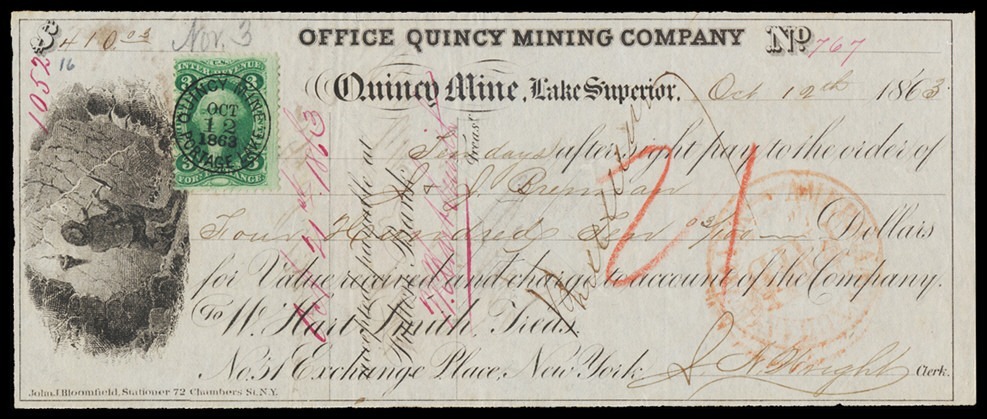 $410 03 Nov. 3
16
1052
OFFICE QUINCY MINING COMPANY No 767
Quincy Mine, Lake Superior, Oct 12th 1863
3 U.S. 3
INTER. REVENUE
FOR. EXCHANGE
QUINCY MINE
OCT
12
1863
PORTAGE LAKE
Ten days after sight pay to the order of
J. Brennan
Four Hundred Ten 03/100 Dollars
for Value received and charge to account of the Company.
To W. Hart Smith, Treas.
No. 51 Exchange Place, New York
Clerk.
21
1863
W. Hart Smith
Treas
at
Bank.
John J. Bloomfield, Stationer 72 Chambers St. N.Y.